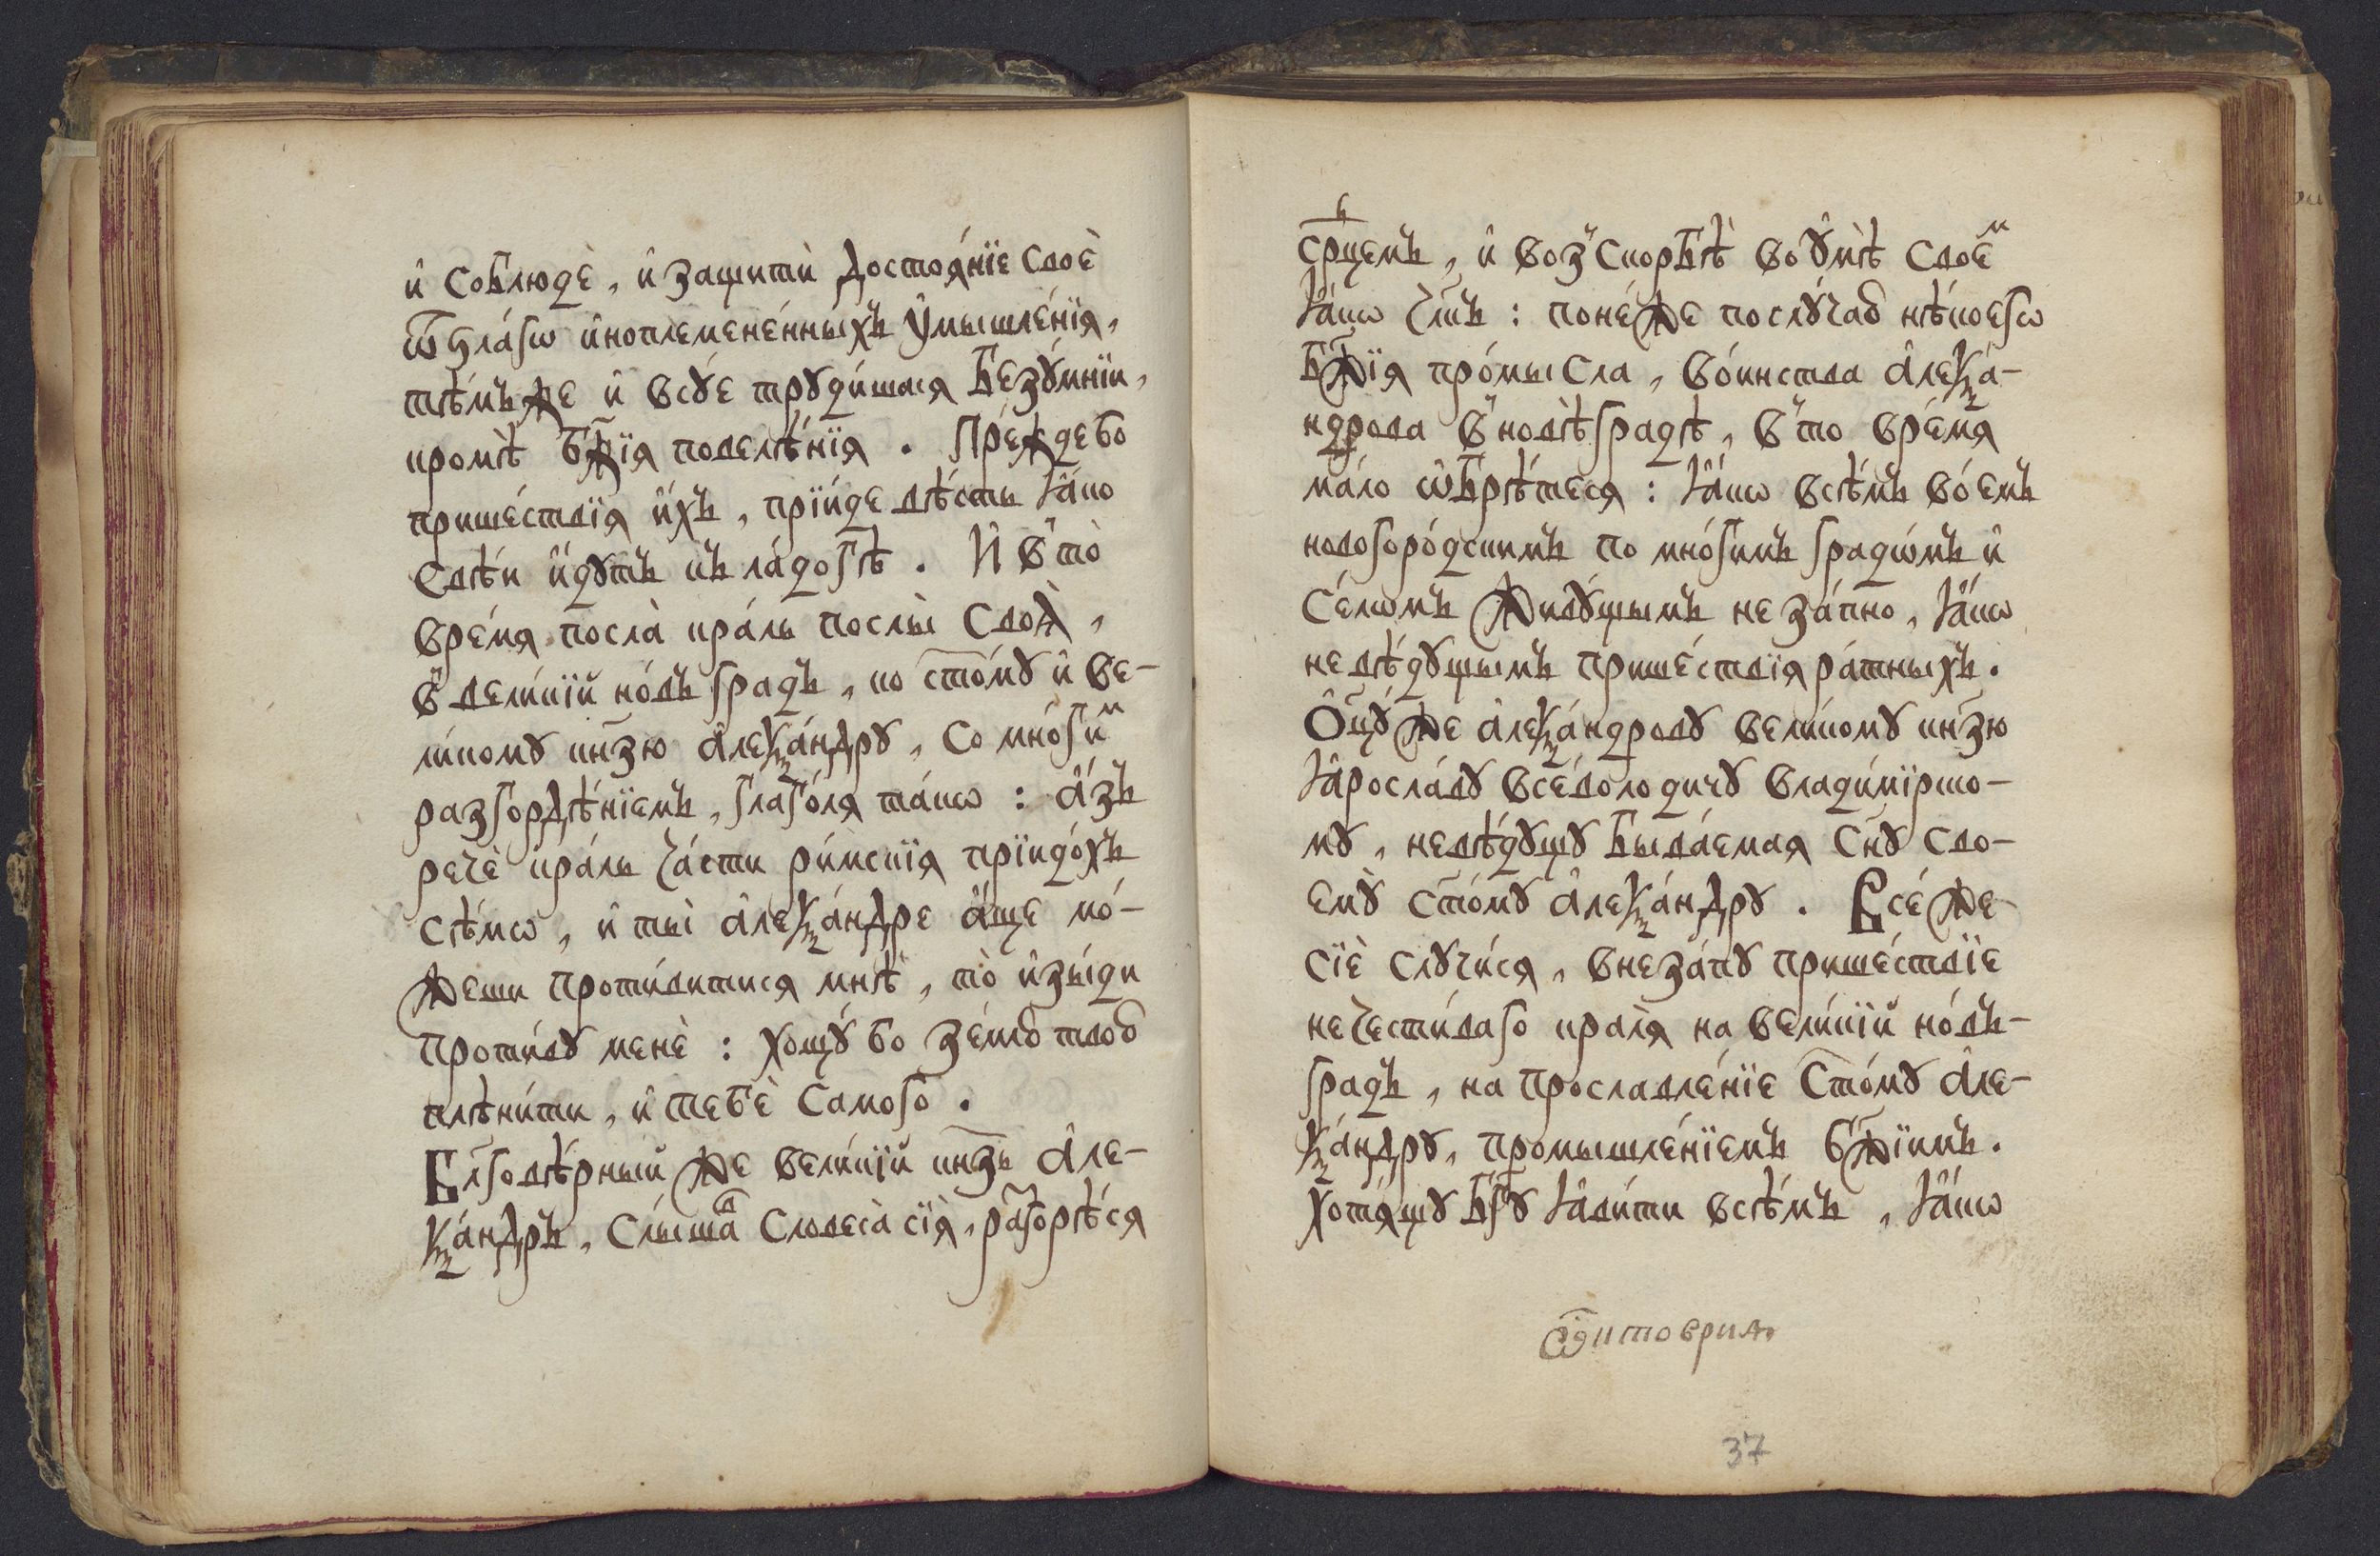 и҆ соблюдѐ, и҆ защитѝ достоѧ́нїе своѐ
ѿ ѕла́гѡ и҆ноплемене́нныхъ ᲂу҆мышле́нїѧ,
тѣ́мъже и҆ всꙋ́е трꙋди́шасѧ безꙋ́мнїи,
кромѣ̀ бж҃їѧ повелѣ́нїѧ. Пре́жде бо
прише́ствїѧ и҆́хъ, прїи́де вѣ́сть ꙗ҆́кѡ
свѣ́и и҆дꙋ́тъ къ ла́догѣ. И҆ в̾ то̀
вре́мѧ посла̀ кра́ль послы̀ своѧ̀,
в̾ вели́кїй но́въ градъ, ко ст҃о́мꙋ и҆ ве-
ли́комꙋ кн҃зю а҆леѯа́ндрꙋ, со мно́гиⷨ
разгордѣ́нїемъ, глаго́лѧ та́кѡ: а҆́зъ
речѐ кра́ль ча́сти ри́мскїѧ прїидо́хъ
сѣ́мѡ, и҆ ты̀ а҆леѯа́ндре а҆́ще мо́-
жеши проти́витисѧ мнѣ̀, то̀ и҆зы́ди
проти́вꙋ менѐ: хощꙋ́ бо зе́млю твою̀
плѣни́ти, и҆ тебѐ самого̀.
Бл҃говѣ́рный же вели́кїй кн҃зь а҆ле-
ѯа́ндръ, слы́шаⷡ словеса̀ сїѧ̀, разгорѣ́сѧ
ср҃цемъ, и҆ воз̾скорбѣ̀ во ᲂу҆мѣ̀ своеⷨ
ꙗ҆́кѡ чл҃къ: поне́же по слꙋ́чаю нѣ́коегѡ
бж҃їѧ про́мысла, во́инства а҆леѯа́-
ндрова в̾ новѣ̀градѣ, в̾ то вре́мѧ
ма́ло ѡ҆брѣ́тесѧ: ꙗ҆́кѡ всѣ́мъ во́емъ
новогоро́дскимъ по мно́гимъ градѡ́мъ и҆
се́лѡмъ живꙋ́щымъ незапно, ꙗ҆́кѡ
невѣ́дꙋщымъ прише́ствїѧ ра́тныхъ.
Ѻ҆ц҃ꙋ́ же а҆леѯа́ндровꙋ вели́комꙋ кн҃зю
ꙗ҆росла́вꙋ все́володичꙋ влади́мїрско-
мꙋ, невѣ́дꙋщꙋ быва́емаѧ сн҃ꙋ сво-
емꙋ̀ ст҃о́мꙋ а҆леѯа́ндрꙋ. Все́ же
сїѐ слꙋчи́сѧ, внеза́пꙋ прише́ствїе
нечести́ваго кралѧ̀ на вели́кїй но́въ-
градъ, на прославле́нїе ст҃о́мꙋ а҆ле-
ѯа́ндрꙋ, промышле́нїемъ бж҃їимъ.
Хотѧ́щꙋ бг҃ꙋ ꙗ҆ви́ти всѣ́мъ, ꙗ҆́кѡ
37